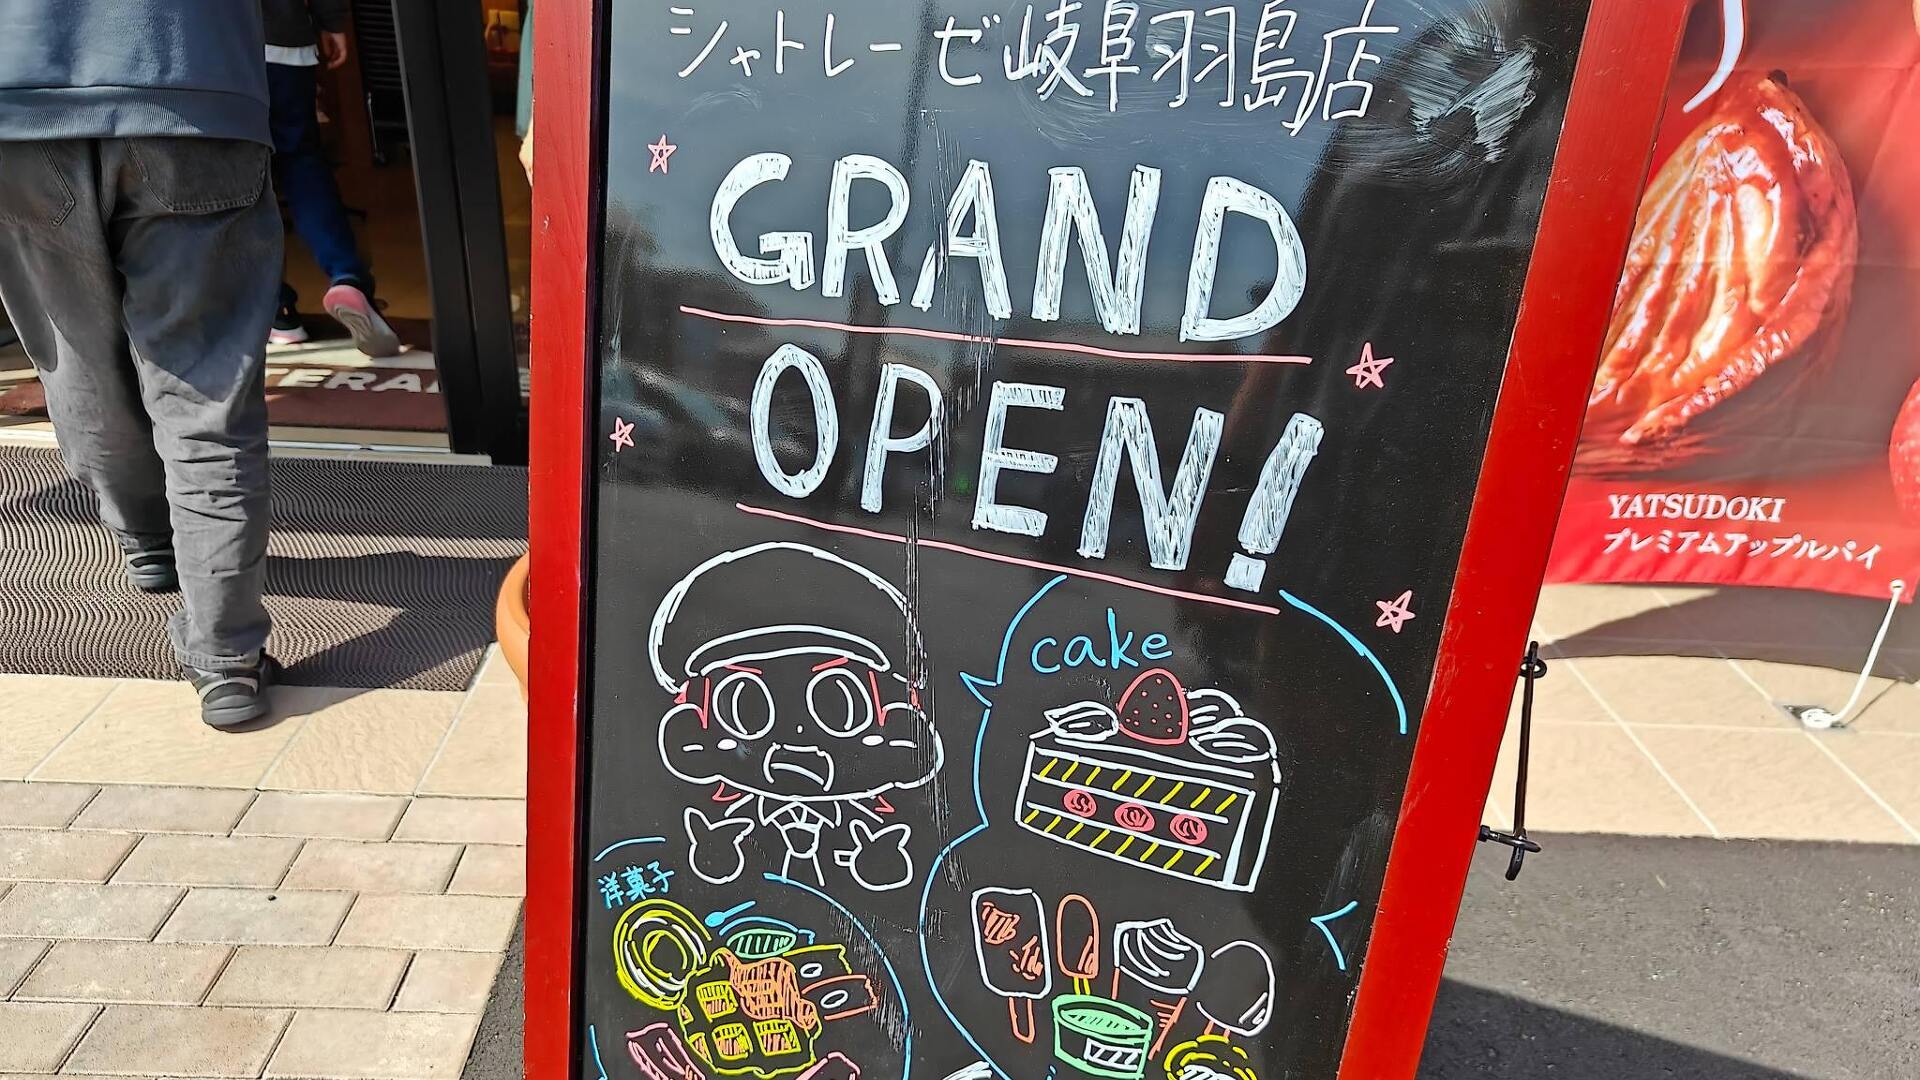 シャトレーゼ岐阜羽島店
GRAND
OPEN!
cake
洋菓子
YATSUDOKI
プレミアムアップルパイ